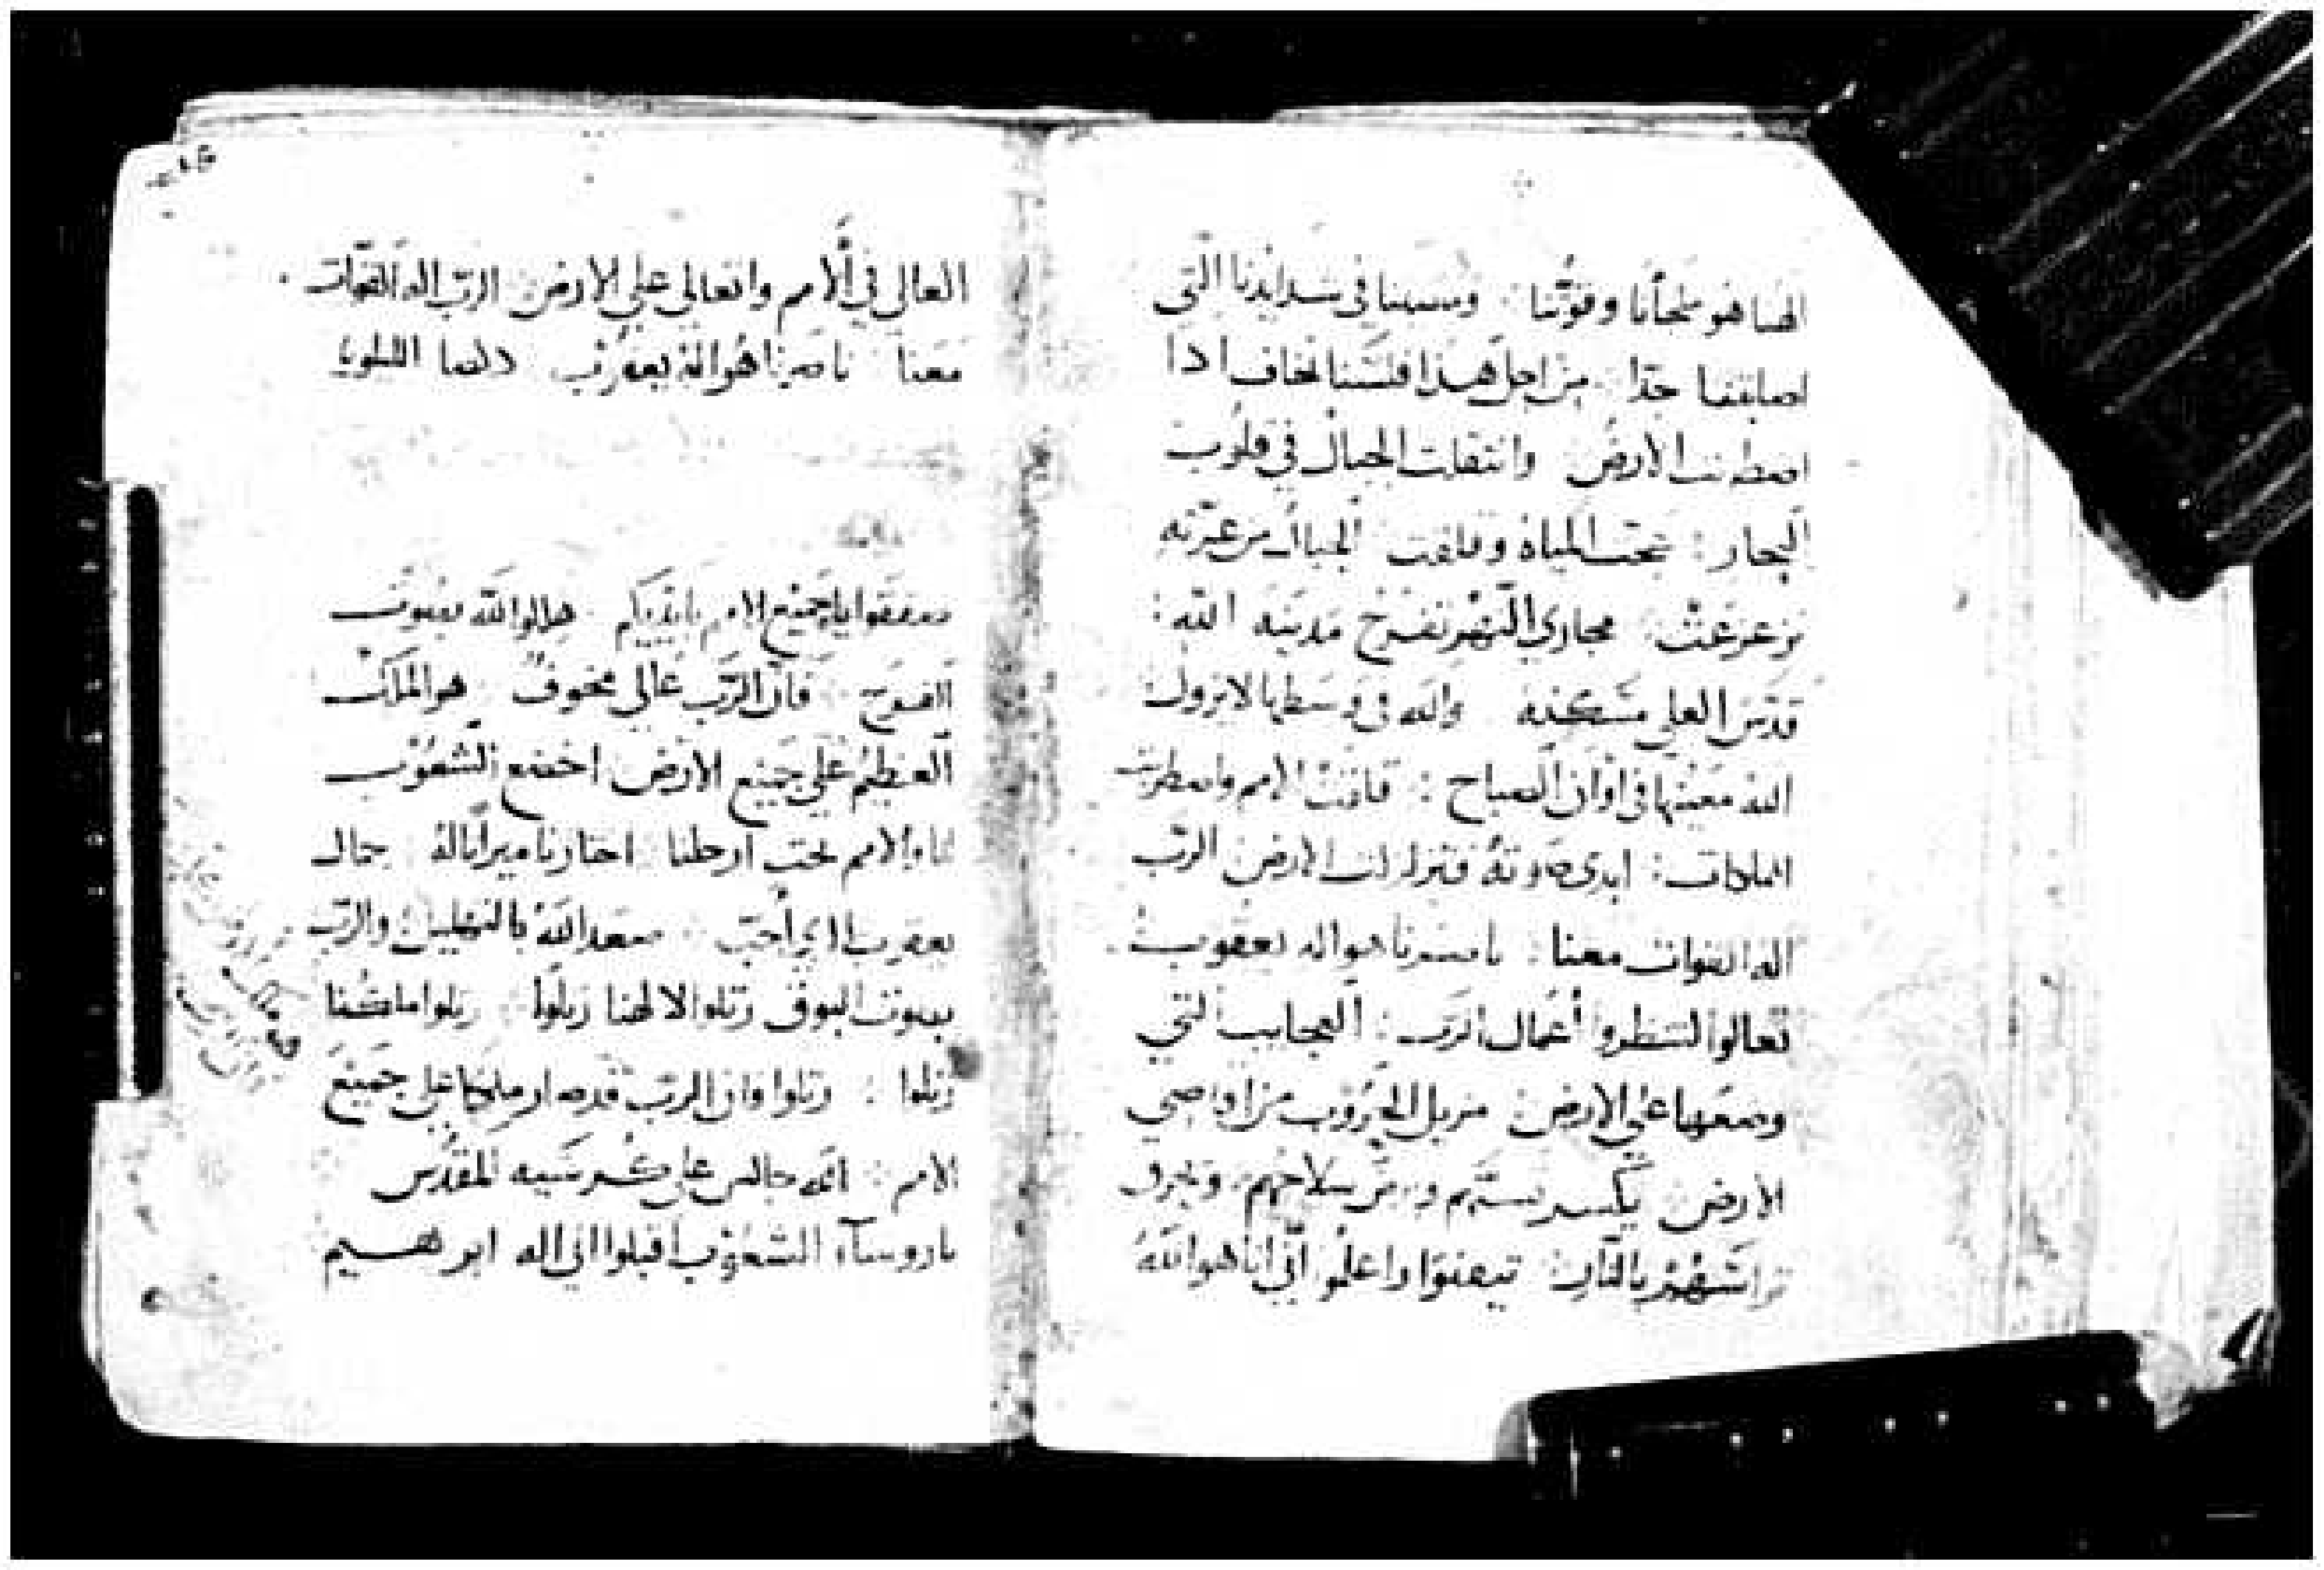 الهنا هو ملجأنا وقوتنا ومعيننا في شدايدنا التي
اصابتنا جدا من اجل هذا فلسنا نخاف اذا
اضطربت الارض وانتقلت الجبال في قلوب
البحار : عجت المياه وقلقت الجبال من عزته
تزعزعت مجاري النهر تفرح مدينه الله :
قدس العلي مسكنه والله في وسطها لا تزول
الله معينها في اوان الصباح : قلقت الامم واضطربت
الملكات : ابدى صوته فتزلزلت الارض الرب
اله القوات معنا : ناصرنا هو اله يعقوب
تعالوا لتنظروا أعمال الرب : العجايب التي
وضعها على الارض مزيل الحروب من اقاصي
الارض يكسر سلاحهم ويحرق
بالنار تيقنوا واعلموا أني أنا هو الله
العالي في الأمم واتعالى على الارض الرب اله القوات .
معنا ناصرنا هو اله يعقوب
صفقوا يا جميع الامم بايديكم هللوا لله بصوت
الفرح فان الرب عالي مخوف هو الملك
العظيم على جميع الارض اخضع الشعوب
لنا والامم تحت ارجلنا اختارنا ميراثا له جمال
يعقوب الذي أحب صعد الله بالتهليل والرب
بصوت البوق رتلوا لالهنا رتلوا رتلوا ملكنا
رتلوا : رتلوا فان الرب قد صار ملكا على جميع
الامم : الله جالس على كرسيه المقدس
يا روسآء الشعوب أقبلوا الى اله ابرهيم